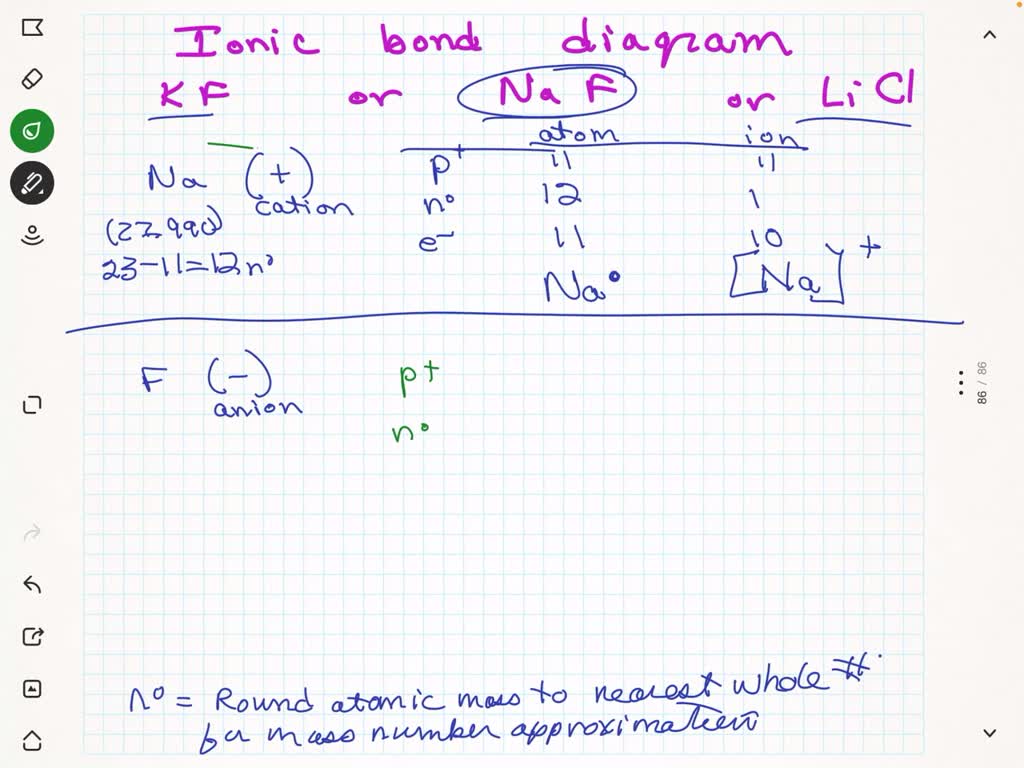 Ionic bond diagram
KF or NaF or LiCl
atom ion
Na (+) p+ 11 11
cation n° 12 1
(22.990) e- 11 10
23-11=12n°
Na° [Na]+
F (-) p+
anion n°
86 / 86
n° = Round atomic mass to nearest whole #.
for mass number approximation